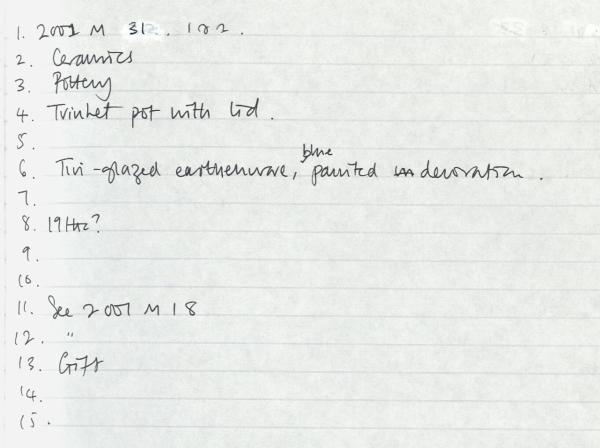 1. 2001 M 312. 122.
2. Ceramics
3. Pottery
4. Trinket pot with lid.
5.
6. Tin-glazed earthenware, blue painted decoration.
7.
8. 19thc?
9.
10.
11. See 2001 M 18
12. "
13. Gift
14.
15.